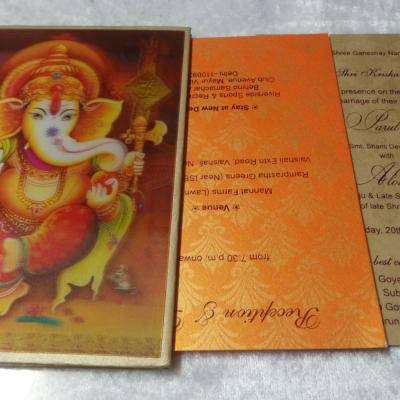 Reception &
from 7:30 p.m. onwa
❋ Venue
Mannat Farms (Lawn
Ramprastha Greens (Near ISB
Vaishali Extn Road, Vaishali,
❋ Stay at New De
Riverside Sports & Recre
Behind Samachar A
Club Avenue, Mayur Vi
Delhi-11009
Shree Ganeshay Nam
Shri Krishn
presence on the
marriage of their
Parul
Smt. Sharni Devi
with
Alo
u & Late S
of late Shri
day, 20th
best c
Goye
Sub
Goy
run